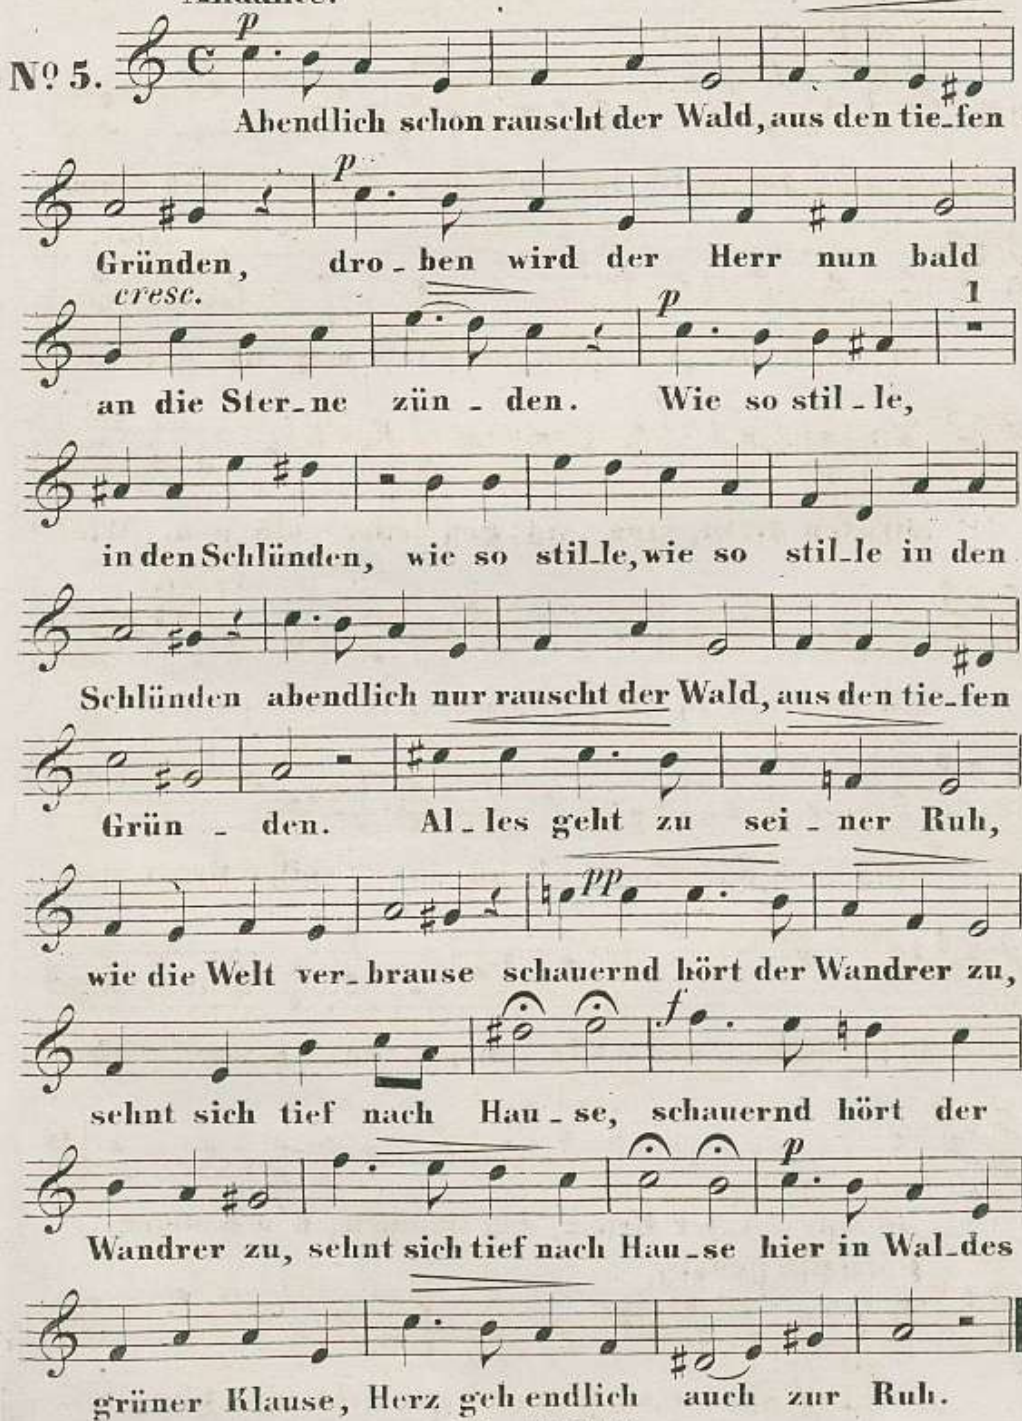 Andante.
p
Nº 5.
C
Abendlich schon rauscht der Wald, aus den tie-fen
p
Gründen, dro-ben wird der Herr nun bald
cresc.
p
1
an die Ster-ne zün-den. Wie so stil-le,
in den Schlünden, wie so stil-le, wie so stil-le in den
Schlünden abendlich nur rauscht der Wald, aus den tie-fen
Grün-den. Al-les geht zu sei-ner Ruh,
pp
wie die Welt ver-brause schauernd hört der Wandrer zu,
f
sehnt sich tief nach Hau-se, schauernd hört der
p
Wandrer zu, sehnt sich tief nach Hau-se hier in Wal-des
grüner Klause, Herz geh endlich auch zur Ruh.